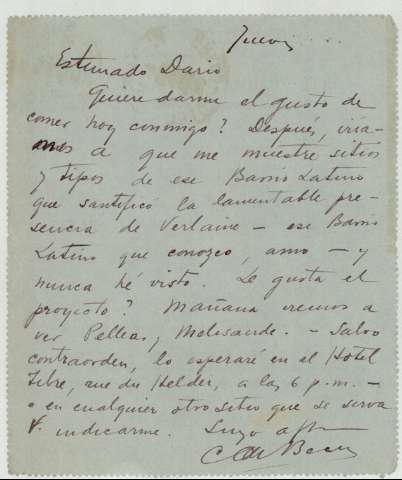 Jueves....
Estimado Dario
Quiere darme el gusto de
comer hoy conmigo? Después, iría-
mos a que me muestre sitios
y tipos de ese Barrio Latino
que santificó la lamentable pre-
sencia de Verlaine – ese Barrio
Latino que conozco, amo – y
nunca hé visto. Le gusta el
proyecto? Mañana iremos a
ver Pelleas y Melisande. – Salvo
contraorden, lo esperaré en el Hotel
rue du Helder, a las 6 p.m. –
o en cualquier otro sitio que se sirva
V. indicarme. Suyo affmo
C.